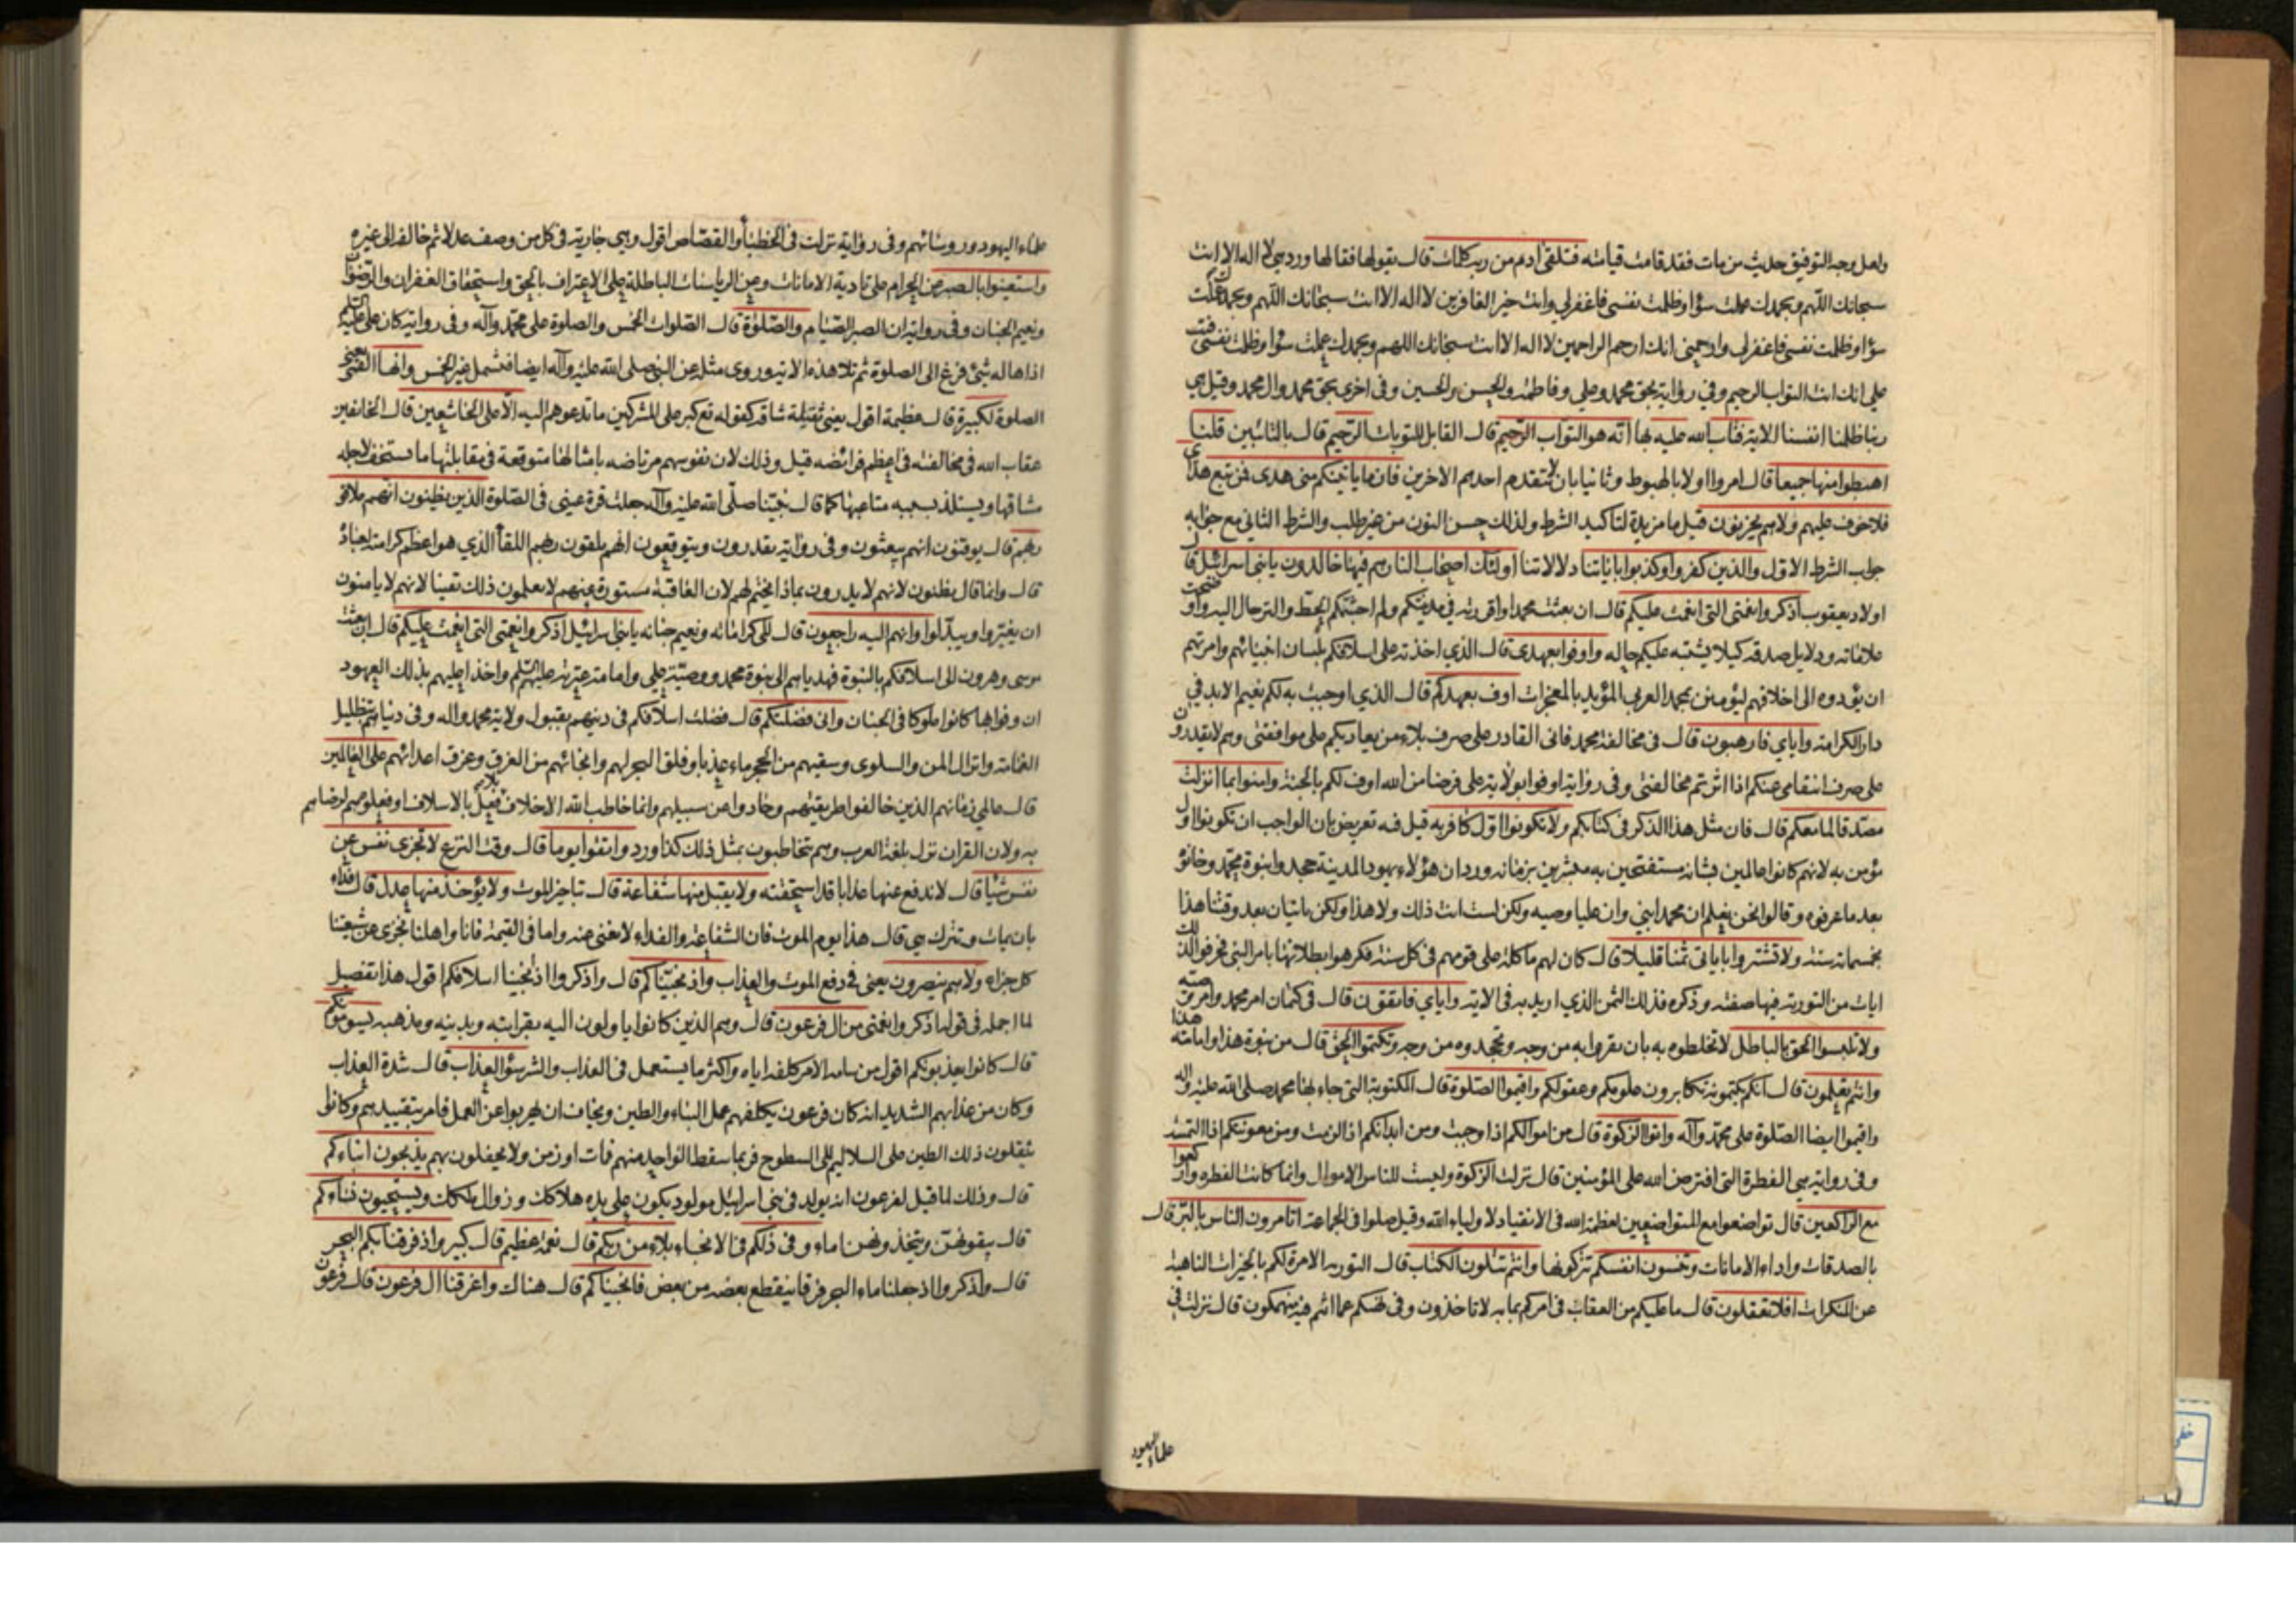 ولعل وجه التوفيق حديث من مات فقد قامت قيامته فتلقى ادم من ربه كلمات قال يقولها فقالها ورد هي لا اله الا انت
سبحانك اللهم وبحمدك عملت سوًا وظلمت نفسي فاغفر لي وانت خير الغافرين لا اله الا انت سبحانك اللهم وبحمدك عملت
سوًا وظلمت نفسي فاغفر لي وارحمني انك ارحم الراحمين لا اله الا انت سبحانك اللهم وبحمدك عملت سوًا وظلمت نفسي فتب
علي انك انت التواب الرحيم وفي رواية بحق محمد وعلي وفاطمة والحسن والحسين وفي اخرى بحق محمد وال محمد وقيل هي
ربنا ظلمنا انفسنا الاية فتاب الله عليه بها انه هو التواب الرحيم قال القابل للتوبات الرحيم قال بالتائبين قلنا
اهبطوا منها جميعا قال امروا اولا بالهبوط وثانيا بان لا يتقدم احدهم الاخرين فاما ياتينكم مني هدى فمن تبع هداي
فلا خوف عليهم ولا هم يحزنون قيل ما مزيدة لتاكيد الشرط ولذلك حسن النون من غير طلب والشرط الثاني مع جوابه
جواب الشرط الاول والذين كفروا وكذبوا باياتنا دلالاتنا اولئك اصحاب النار هم فيها خالدون يا بني اسرائيل قال
اولاد يعقوب اذكروا نعمتي التي انعمت عليكم قال ان بعثت محمدا واقررته في مدينتكم ولم اجشمكم الحط والترحال اليه واوضحت
علاماته ودلايل صدقه كيلا يشتبه عليكم حاله واوفوا بعهدي قال الذي اخذته على اسلافكم بلسان انبيائهم وامرتهم
ان يؤدوه الى اخلافهم ليؤمنن بمحمد العربي المؤيد بالمعجزات اوف بعهدكم قال الذي اوجبت به لكم نعيم الابد في
دار الكرامة واياي فارهبون قال في مخالفة محمد فاني القادر على صرف بلاء من يعاديكم على موافقتي وهم لا يقدرون
على صرف انتقامي عنكم اذا اثرتم مخالفتي وفي رواية اوفوا بولاية علي فرضا من الله اوف لكم بالجنة وامنوا بما انزلت
مصدقا لما معكم قال فان مثل هذا الذكر في كتابكم ولا تكونوا اول كافر به قيل فيه تعريض بان الواجب ان تكونوا اول
مؤمن به لانهم كانوا عالمين بشانه مستفتحين به مبشرين بزمانه ورد ان هؤلاء يهود المدينة جحدوا نبوة محمد وخانوه
بعد ما عرفوه وقالوا نحن نعلم ان محمدا نبي وان عليا وصيه ولكن لست انت ذلك ولا هذا ولكن ياتيان بعد وقتنا هذا
بخمسمائة سنة ولا تشتروا باياتي ثمنا قليلا قال كان لهم ماكلة على قومهم في كل سنة فكرهوا بطلانها بامر النبي فحرفوا لذلك
ايات من التورية فيها صفته وذكره فذلك الثمن الذي اريد به في الاية واياي فاتقون قال في كتمان امر محمد وامر وصيه
ولا تلبسوا الحق بالباطل لا تخلطوه به بان تقروا به من وجه وتجحدوه من وجه وتكتموا الحق قال من نبوة هذا وامامة هذا
وانتم تعلمون قال انكم تكتمونه تكابرون علومكم وعقولكم واقيموا الصلوة قال المكتوبة التي جاء بها محمد صلى الله عليه واله
واقيموا ايضا الصلوة على محمد وآله واتوا الزكوة قال من اموالكم اذا وجبت ومن ابدانكم اذا لزمت ومن معونتكم اذا التمست
وفي رواية هي الفطرة التي افترض الله على المؤمنين قال نزلت الزكوة وليست للناس الاموال وانما كانت الفطرة واركعوا
مع الراكعين قال تواضعوا مع المتواضعين لعظمة الله في الانقياد لاولياء الله وقيل صلوا في الجماعة اتامرون الناس بالبر قال
بالصدقات واداء الامانات وتنسون انفسكم تتركونها وانتم تتلون الكتاب قال التورية الامرة لكم بالخيرات الناهية
عن المنكرات افلا تعقلون قال ما عليكم من العقاب في امركم بما به لا تاخذون وفي نهيكم عما انتم فيه منهمكون قال نزلت في
علماء اليهود
علماء اليهود ورؤسائهم وفي رواية نزلت في الخطباء والقصاص اقول وهي جارية في كل من وصف عدلا ثم خالفه الى غيره
واستعينوا بالصبر عن الحرام على تادية الامانات وعن الرياسات الباطلة على الاعتراف بالحق واستحقاق الغفران والرضوان
ونعيم الجنان وفي رواية ان الصبر الصيام والصلوة قال الصلوات الخمس والصلوة على محمد وآله وفي رواية كان علي عليه السلم
اذا هاله شئ فزع الى الصلوة ثم تلا هذه الاية وروى مثله عن النبي صلى الله عليه وآله ايضا فتشمل غير الخمس وانها يعني
الصلوة لكبيرة قال عظيمة اقول يعني ثقيلة شاقة كقوله تع كبر على المشركين ما تدعوهم اليه الا على الخاشعين قال الخائفين
عقاب الله في مخالفته في اعظم فرائضه قيل وذلك لان نفوسهم مرتاضة بامثالها متوقعة في مقابلتها ما يستخف لاجله
مشاقها ويستلذ بسببه متاعبها كما قال نبينا صلى الله عليه وآله جعلت قرة عيني في الصلوة الذين يظنون انهم ملاقوا
ربهم قال يوقنون انهم يبعثون وفي رواية يقدرون ويتوقعون انهم يلقون ربهم اللقاء الذي هو اعظم كرامته لعباده
قال وانما قال يظنون لانهم لا يدرون بماذا يختم لهم لان العاقبة مستورة عنهم لا يعلمون ذلك يقينا لانهم لا يامنون
ان يغيروا ويبدلوا وانهم اليه راجعون قال الى كراماته ونعيم جناته يا بني اسرائيل اذكروا نعمتي التي انعمت عليكم قال ان بعثت
موسى وهرون الى اسلافكم بالنبوة فهدياهم الى نبوة محمد ووصية علي وامامة عترته عليهم السلم واخذا عليهم بذلك العهود
ان وفوا بها كانوا ملوكا في الجنان واني فضلتكم قال فضلت اسلافكم في دينهم بقبول ولاية محمد واله وفي دنياهم بتظليل
الغمامة وانزال المن والسلوى وسقيهم من الحجر ماء عذبا وفلق البحر لهم وانجائهم من الغرق وغرق اعدائهم على العالمين
قال عالمي زمانهم الذين خالفوا طريقتهم وحادوا عن سبيلهم وانما خاطب الله الاخلاف بما فعل بالاسلاف او فعلوه هم لرضاهم
به ولان القران نزل بلغة العرب وهم يتخاطبون بمثل ذلك كذا ورد واتقوا يوما قال وقت النزع لا تجزى نفس عن
نفس شيأ قال لا تدفع عنها عذابا قد استحقته ولا يقبل منها شفاعة قال بتاخير الموت ولا يؤخذ منها عدل قال فداء
بان يمات وتترك هي قال هذا يوم الموت فان الشفاعة والفداء لا يغني عنه واما في القيمة فانا واهلنا نجزى عن شيعتنا
كل جزاء ولا هم ينصرون يعني في دفع الموت والعذاب واذ نجيناكم قال واذكروا اذ نجينا اسلافكم اقول هذا تفصيل
لما اجمله في قوله اذكروا نعمتي من ال فرعون قال وهم الذين كانوا يا ولون اليه بقرابته وبدينه ومذهبه يسومونكم
قال كانوا يعذبونكم اقول من سامه الامر كلفه اياه واكثر ما يستعمل في العذاب والشر سوء العذاب قال شدة العذاب
وكان من عذابهم الشديد انه كان فرعون يكلفهم عمل البناء والطين ويخاف ان يهربوا عن العمل فامر بتقييدهم وكانوا
ينقلون ذلك الطين على السلاليم الى السطوح فربما سقط الواحد منهم فمات او زمن ولا يحفلون بهم يذبحون ابناءكم
قال وذلك لما قيل لفرعون انه يولد في بني اسرائيل مولود يكون على يده هلاكك وزوال ملكك ويستحيون نساءكم
قال يبقونهن ويتخذونهن اماء وفي ذلكم في الانجاء بلاء من ربكم قال نعمة عظيم قال كبير واذ فرقنا بكم البحر
قال واذكروا اذ جعلنا ماء البحر فرقا ينقطع بعضه من بعض فانجيناكم قال هناك واغرقنا ال فرعون قال فرعون